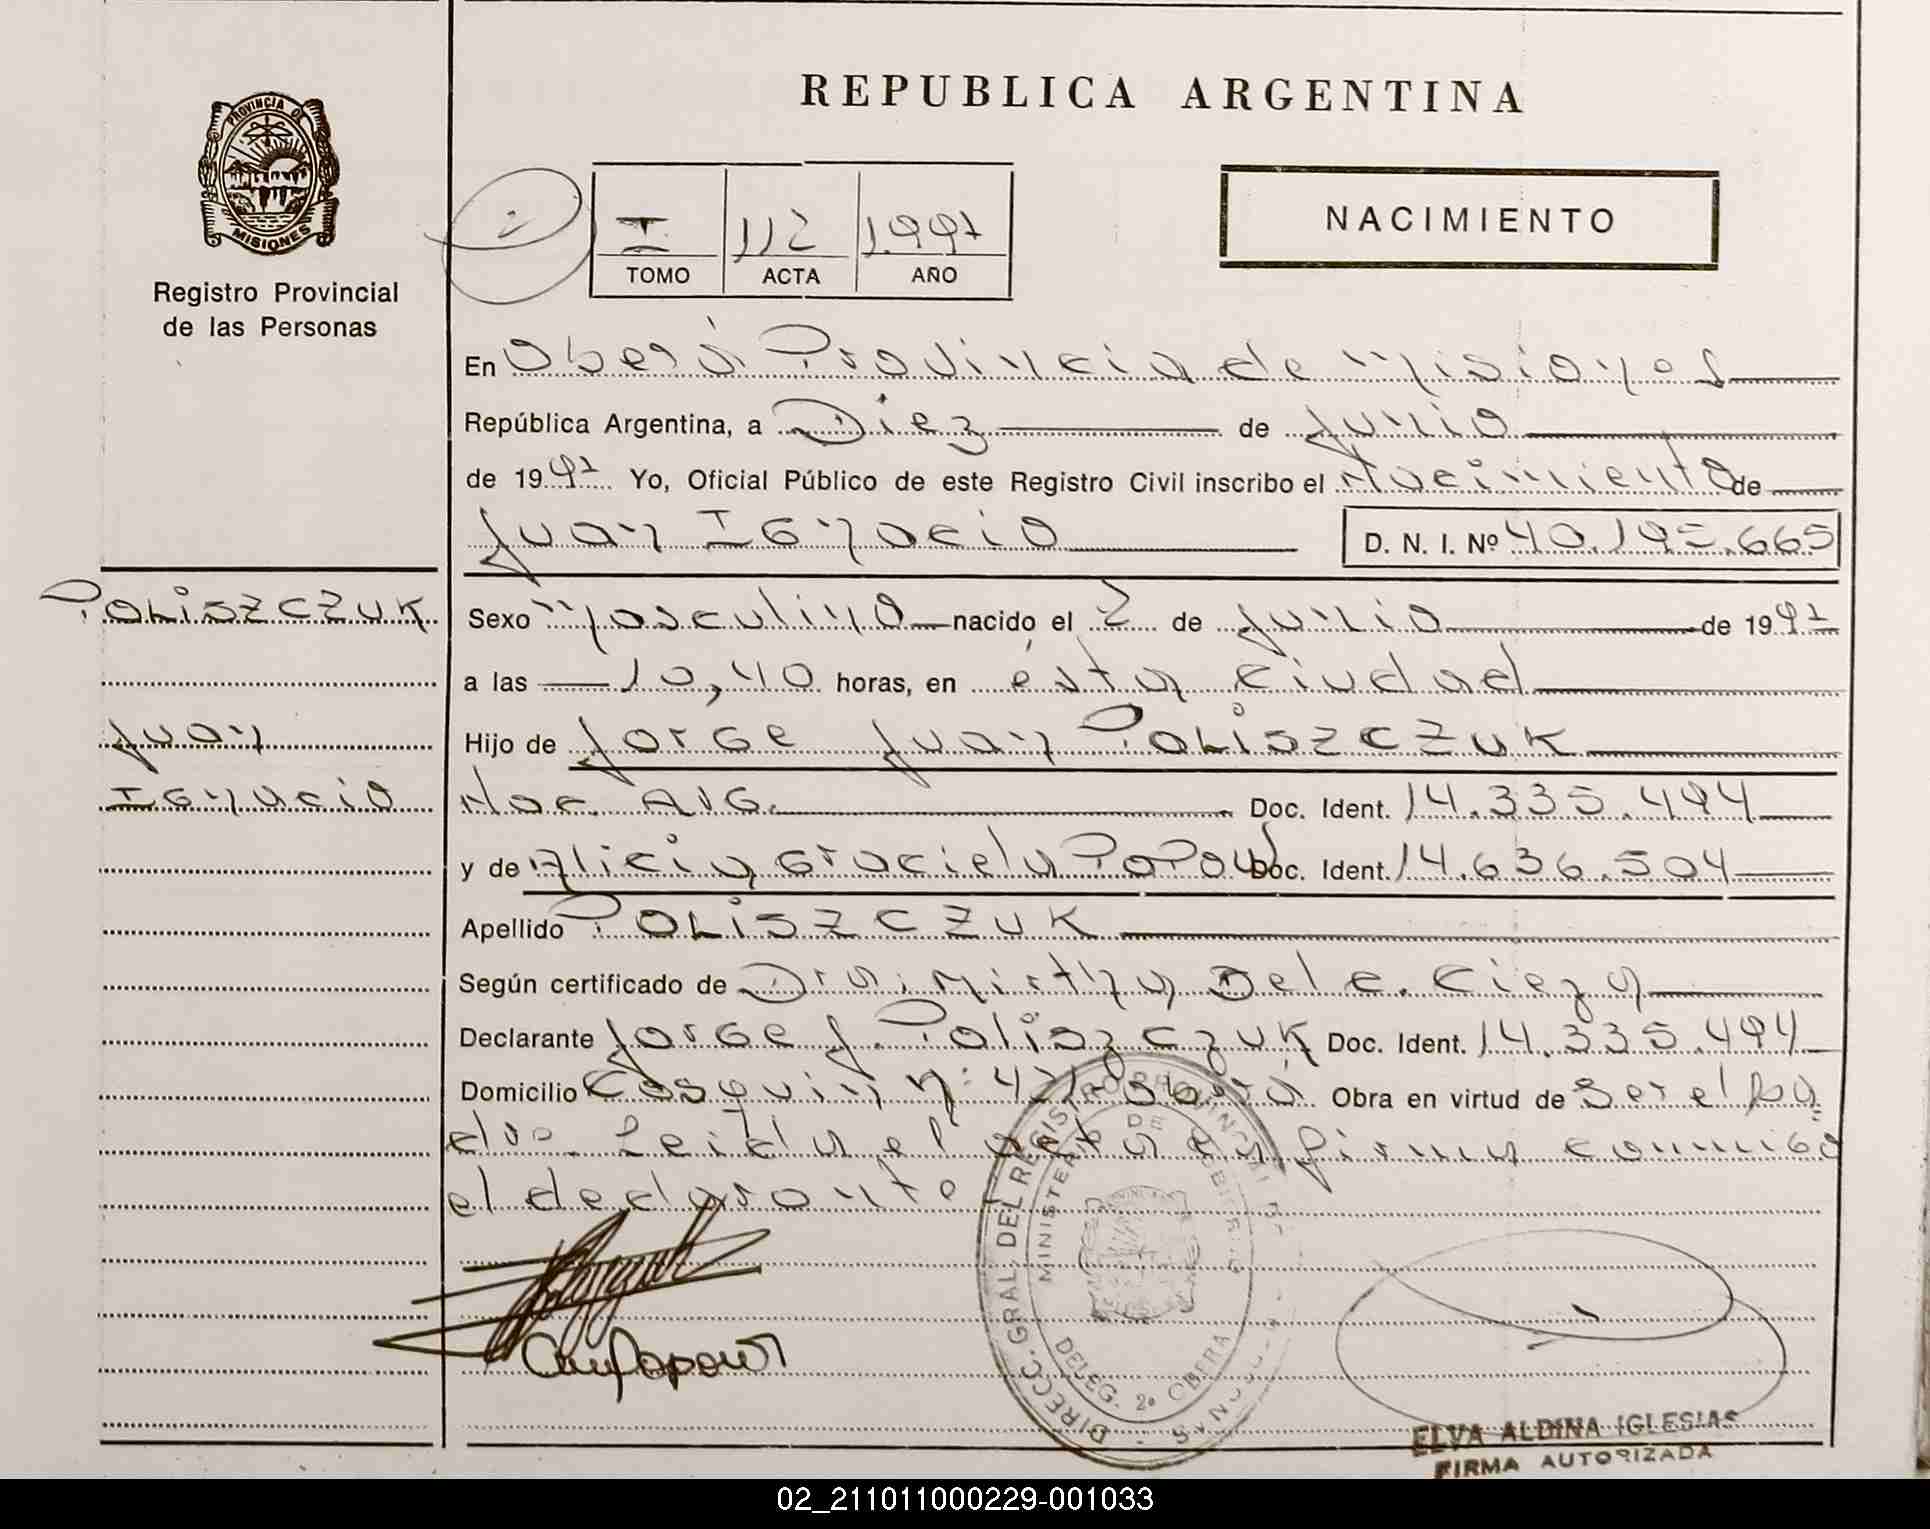 REPUBLICA ARGENTINA
PROVINCIA DE
MISIONES
Registro Provincial
de las Personas
I 112 1.997
TOMO ACTA AÑO
NACIMIENTO
En Oberá Provincia de Misiones
República Argentina, a Diez de Junio
de 1997 Yo, Oficial Público de este Registro Civil inscribo el Nacimiento de
Juan Ignacio D. N. I. Nº 40.195.665
POLISZCZUK
Juan
Ignacio
Sexo Masculino nacido el 2 de Junio de 1997
a las 10,40 horas, en ésta Ciudad
Hijo de Jorge Juan POLISZCZUK
Nac. Arg. Doc. Ident. 14.335.494
y de Alicia Graciela POPOW Doc. Ident. 14.636.504
Apellido POLISZCZUK
Según certificado de Dra. Mirtha Del C. Cieza
Declarante Jorge J. Poliszczuk Doc. Ident. 14.335.494
Domicilio Cosquin Nº Oberá Obra en virtud de Ser el pa
dre. Leida el acta la firma conmigo
el declarante
DIRECC. GRAL. DEL REGIST. PROVINCIAL DE
MINISTER DE GOBIERNO
DELEG. 2º OBERA
ELVA ALDINA IGLESIAS
FIRMA AUTORIZADA
02_211011000229-001033